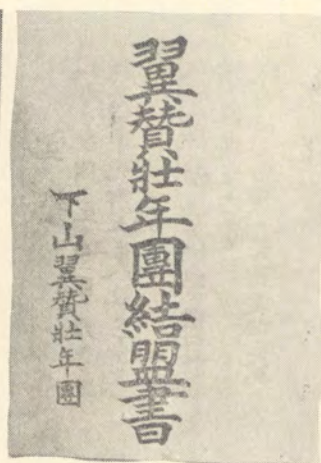 翼賛壮年團結盟書
下山翼賛壮年團